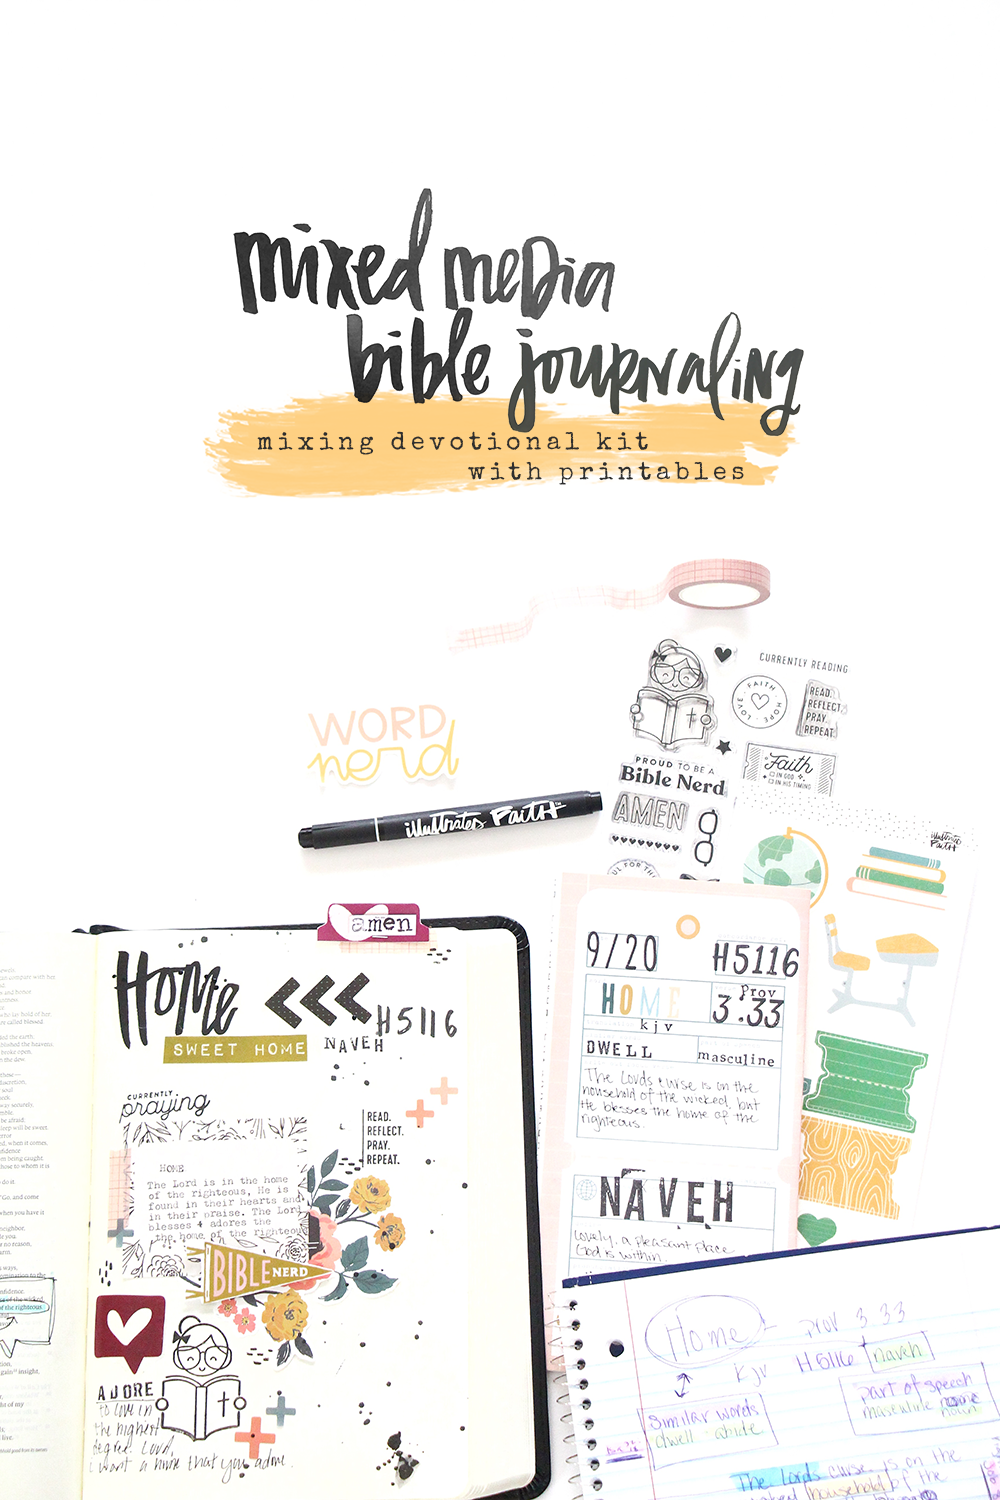 mixed media
bible journaling
mixing devotional kit
with printables
WORD
nerd
illustrated FAITH
CURRENTLY READING
FAITH · HOPE · LOVE
READ.
REFLECT.
PRAY.
REPEAT.
PROUD TO BE A
Bible Nerd
Faith
IN GOD
IN HIS TIMING
AMEN
FUL FOR THE
illustrated
FAITH
amen
HOME
SWEET HOME
NAVEH
H5116
CURRENTLY
praying
READ.
REFLECT.
PRAY.
REPEAT.
HOME
The Lord is in the home
of the righteous, He is
found in their hearts and
in their praise. The Lord
blesses + adores the
the home of the righteou
BIBLE NERD
ADORE
to love in
the highest
degree. Lord,
i want a home that you adore.
9/20
H5116
HOME
kjv
Prov
3.33
DWELL
masculine
The Lords curse is on the
household of the wicked, but
He blesses the home of the
righteous.
NAVEH
Lovely, a pleasant place
God is within
Home - Prov 3 33
kjv H5116 naveh
similar words
dwell - abide
part of speech
masculine
noun
The Lords curse is on the
household of the
of the righteous